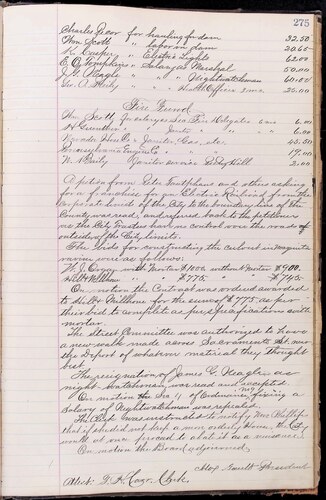 275
Charles Dcor for hauling for dam 32.50
Wm Scott " labor on dam 20.65
K. Casper " Electric Lights 62.00
E. C. Tompkins Salary as Marshal 50.00
J. G. Neagle " " Nightwatchman 60.00
Geo. A. " " Health Officer 25.00
Fire Fund
Wm. Scott Janitor Fire Co. 6.00
H Gunther " 6.00
Hose Co. Janitor, Gas, etc. 45.50
Pennsylvania Engine Co. " 17.00
W. N. Janitor service 2.00
A petition from and others asking
for a franchise for an Electric Railroad from the
Corporate limits of the City to the boundary line of the
County was read, and referred back to the petitioners
as the City Trustees have no control over the roads
outside of the City limits.
The bids for constructing the culvert in Magenta
ravine were as follows:
W. J. with Mortar $1000 without Mortar $900.
Hill & Millham " " $775 " " $745.
On motion the Contract was ordered awarded
to Hill & Millham for the sum of $775 as per
their bid to complete as per specifications with
mortar.
The street Committee was authorized to have
a new walk made across Sacramento St. near
the Depot of whatever material they thought
best.
The resignation of James G. Neagle as
night watchman was read and accepted.
On motion Sec 4 of Ordinance fixing a
Salary of Nightwatchman was repealed.
The Clerk was instructed to notify Mrs.
that if she did not keep a more orderly House, the City
would at once proceed to abate it as a nuisance.
On motion the Board adjourned.
President
Attest: Clerk